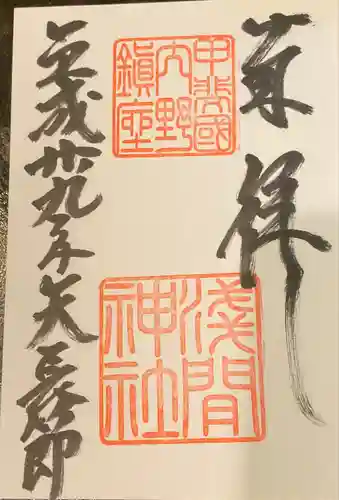 奉拝
甲斐國
大野
鎮座
浅間
神社
平成廿九年